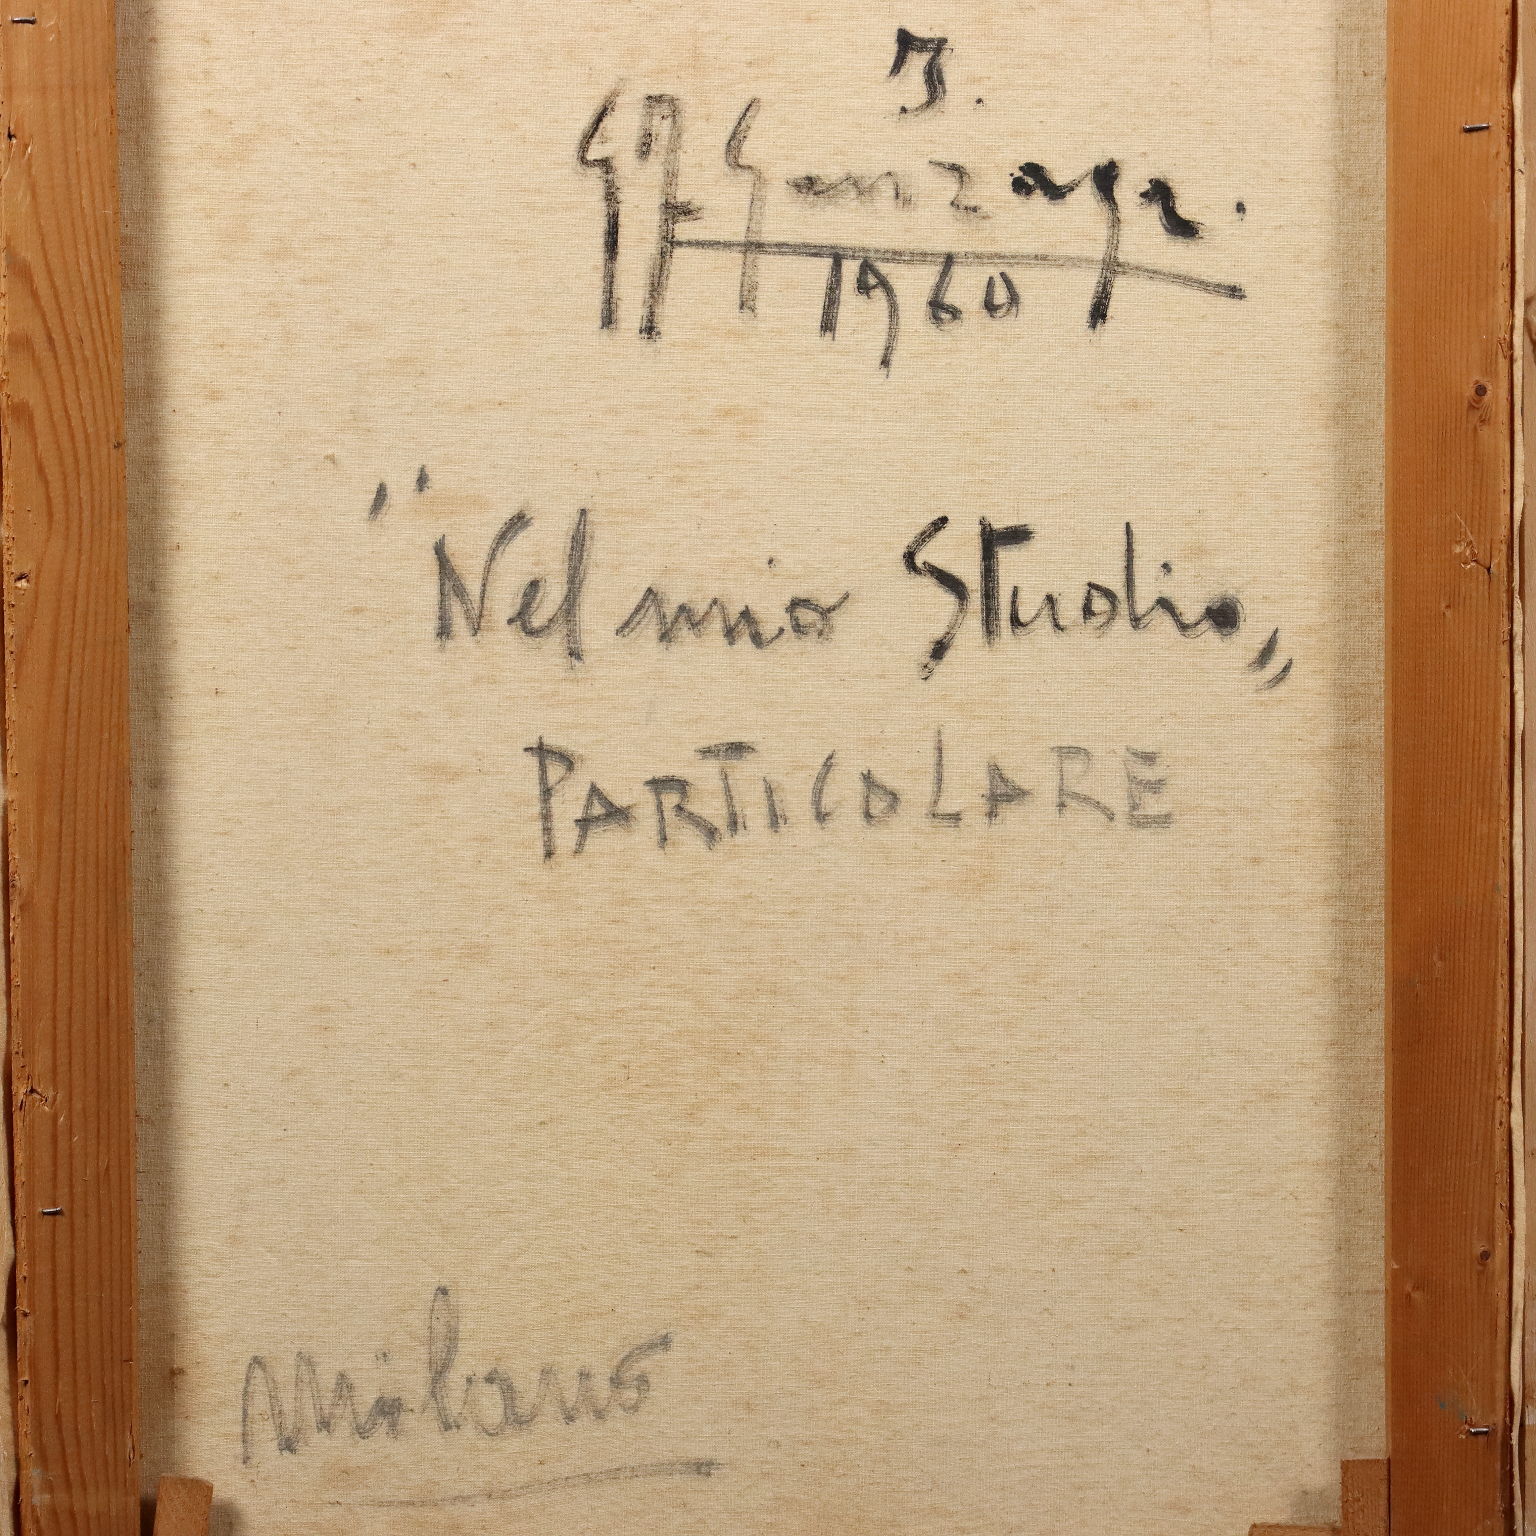 J.
GF Gonzaga.
1960
"Nel mio Studio„
PARTICOLARE
Milano